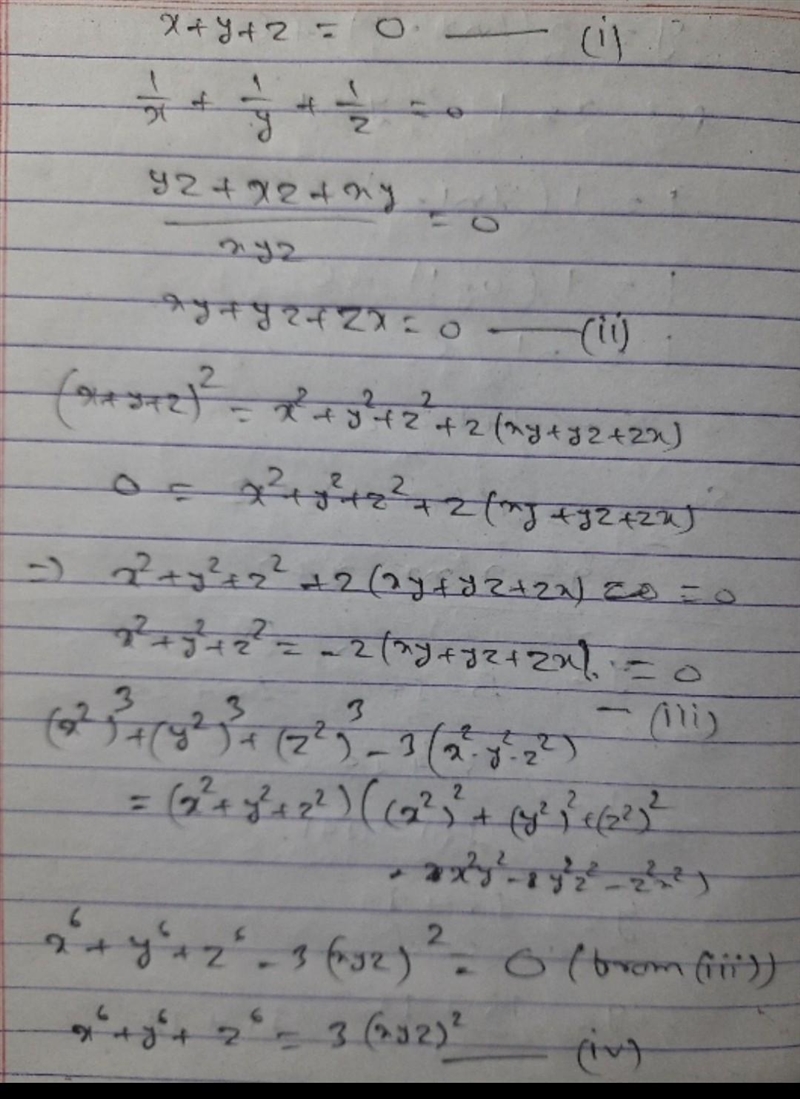 x+y+z = 0 —— (i)
1/x + 1/y + 1/z = 0
(yz + xz + xy)/(xyz) = 0
xy+yz+zx = 0 —— (ii)
(x+y+z)² = x²+y²+z²+2(xy+yz+zx)
0 = x²+y²+z²+2(xy+yz+zx)
=> x²+y²+z²+2(xy+yz+zx) = 0
x²+y²+z² = -2(xy+yz+zx). = 0
— (iii)
(x²)³+(y²)³+(z²)³-3(x²·y²·z²)
= (x²+y²+z²)((x²)²+(y²)²+(z²)²
- x²y²-y²z²-z²x²)
x⁶+y⁶+z⁶-3(xyz)² = 0 (from (iii))
x⁶+y⁶+z⁶ = 3(xyz)² —— (iv)